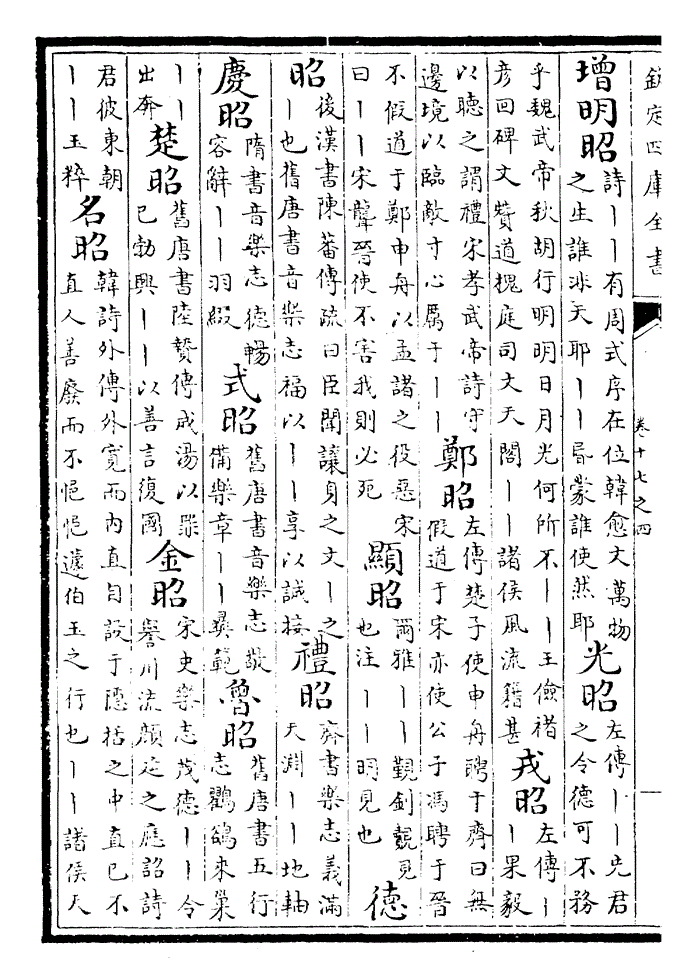 欽定四庫全書
卷十七之四
増明昭
詩｜｜有周式序在位韓愈文萬物
之生誰非天耶｜｜昬蒙誰使然耶
光昭
左傳｜｜先君
之令德可不務
乎魏武帝秋胡行明明日月光何所不｜｜王儉褚
彦回碑文贊道槐庭司文天閣｜｜諸侯風流籍甚
戎昭
左傳｜
｜果毅
以聽之謂禮宋孝武帝詩守
邊境以臨敵寸心厲于｜｜
鄭昭
左傳楚子使申舟聘于齊曰無
假道于宋亦使公子馮聘于晉
不假道于鄭申舟以孟諸之役惡宋
曰｜｜宋聾晉使不害我則必死
顯昭
爾雅｜｜覲釗覿見
也注｜｜明見也
德
昭
後漢書陳蕃傳疏曰臣聞讓身之文｜之
｜也舊唐書音樂志福以｜｜享以誠接
禮昭
齊書樂志義滿
天淵｜｜地軸
慶昭
隋書音樂志德暢
容辭｜｜羽綴
式昭
舊唐書音樂志敬
備樂章｜｜彞範
魯昭
舊唐書五行
志鸜鵒來巢
｜｜
出奔
楚昭
舊唐書陸贄傳成湯以罪
已勃興｜｜以善言復國
金昭
宋史樂志茂德｜｜令
譽川流顔延之應詔詩
君彼東朝
｜｜玉粹
名昭
韓詩外傳外寛而内直自設于隱括之中直已不
直人善廢而不悒悒蘧伯玉之行也｜｜諸侯天